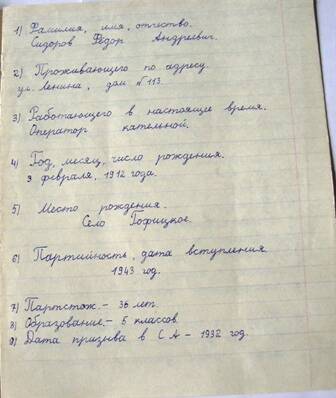 1) Фамилия, имя, отчество.
Сидоров Фёдор Андреевич.
2) Проживающего по адресу.
ул. Ленина, дом №113.
3) Работающего в настоящее время.
Оператор кательной.
4) Год, месяц, число рождения.
3 февраля, 1912 года.
5) Место рождения.
Село Гофицкое.
6) Партийность, дата вступления
1943 год.
7) Партстож. - 36 лет.
8) Образование. - 5 классов.
9) Дата призыва в С А - 1932 год.